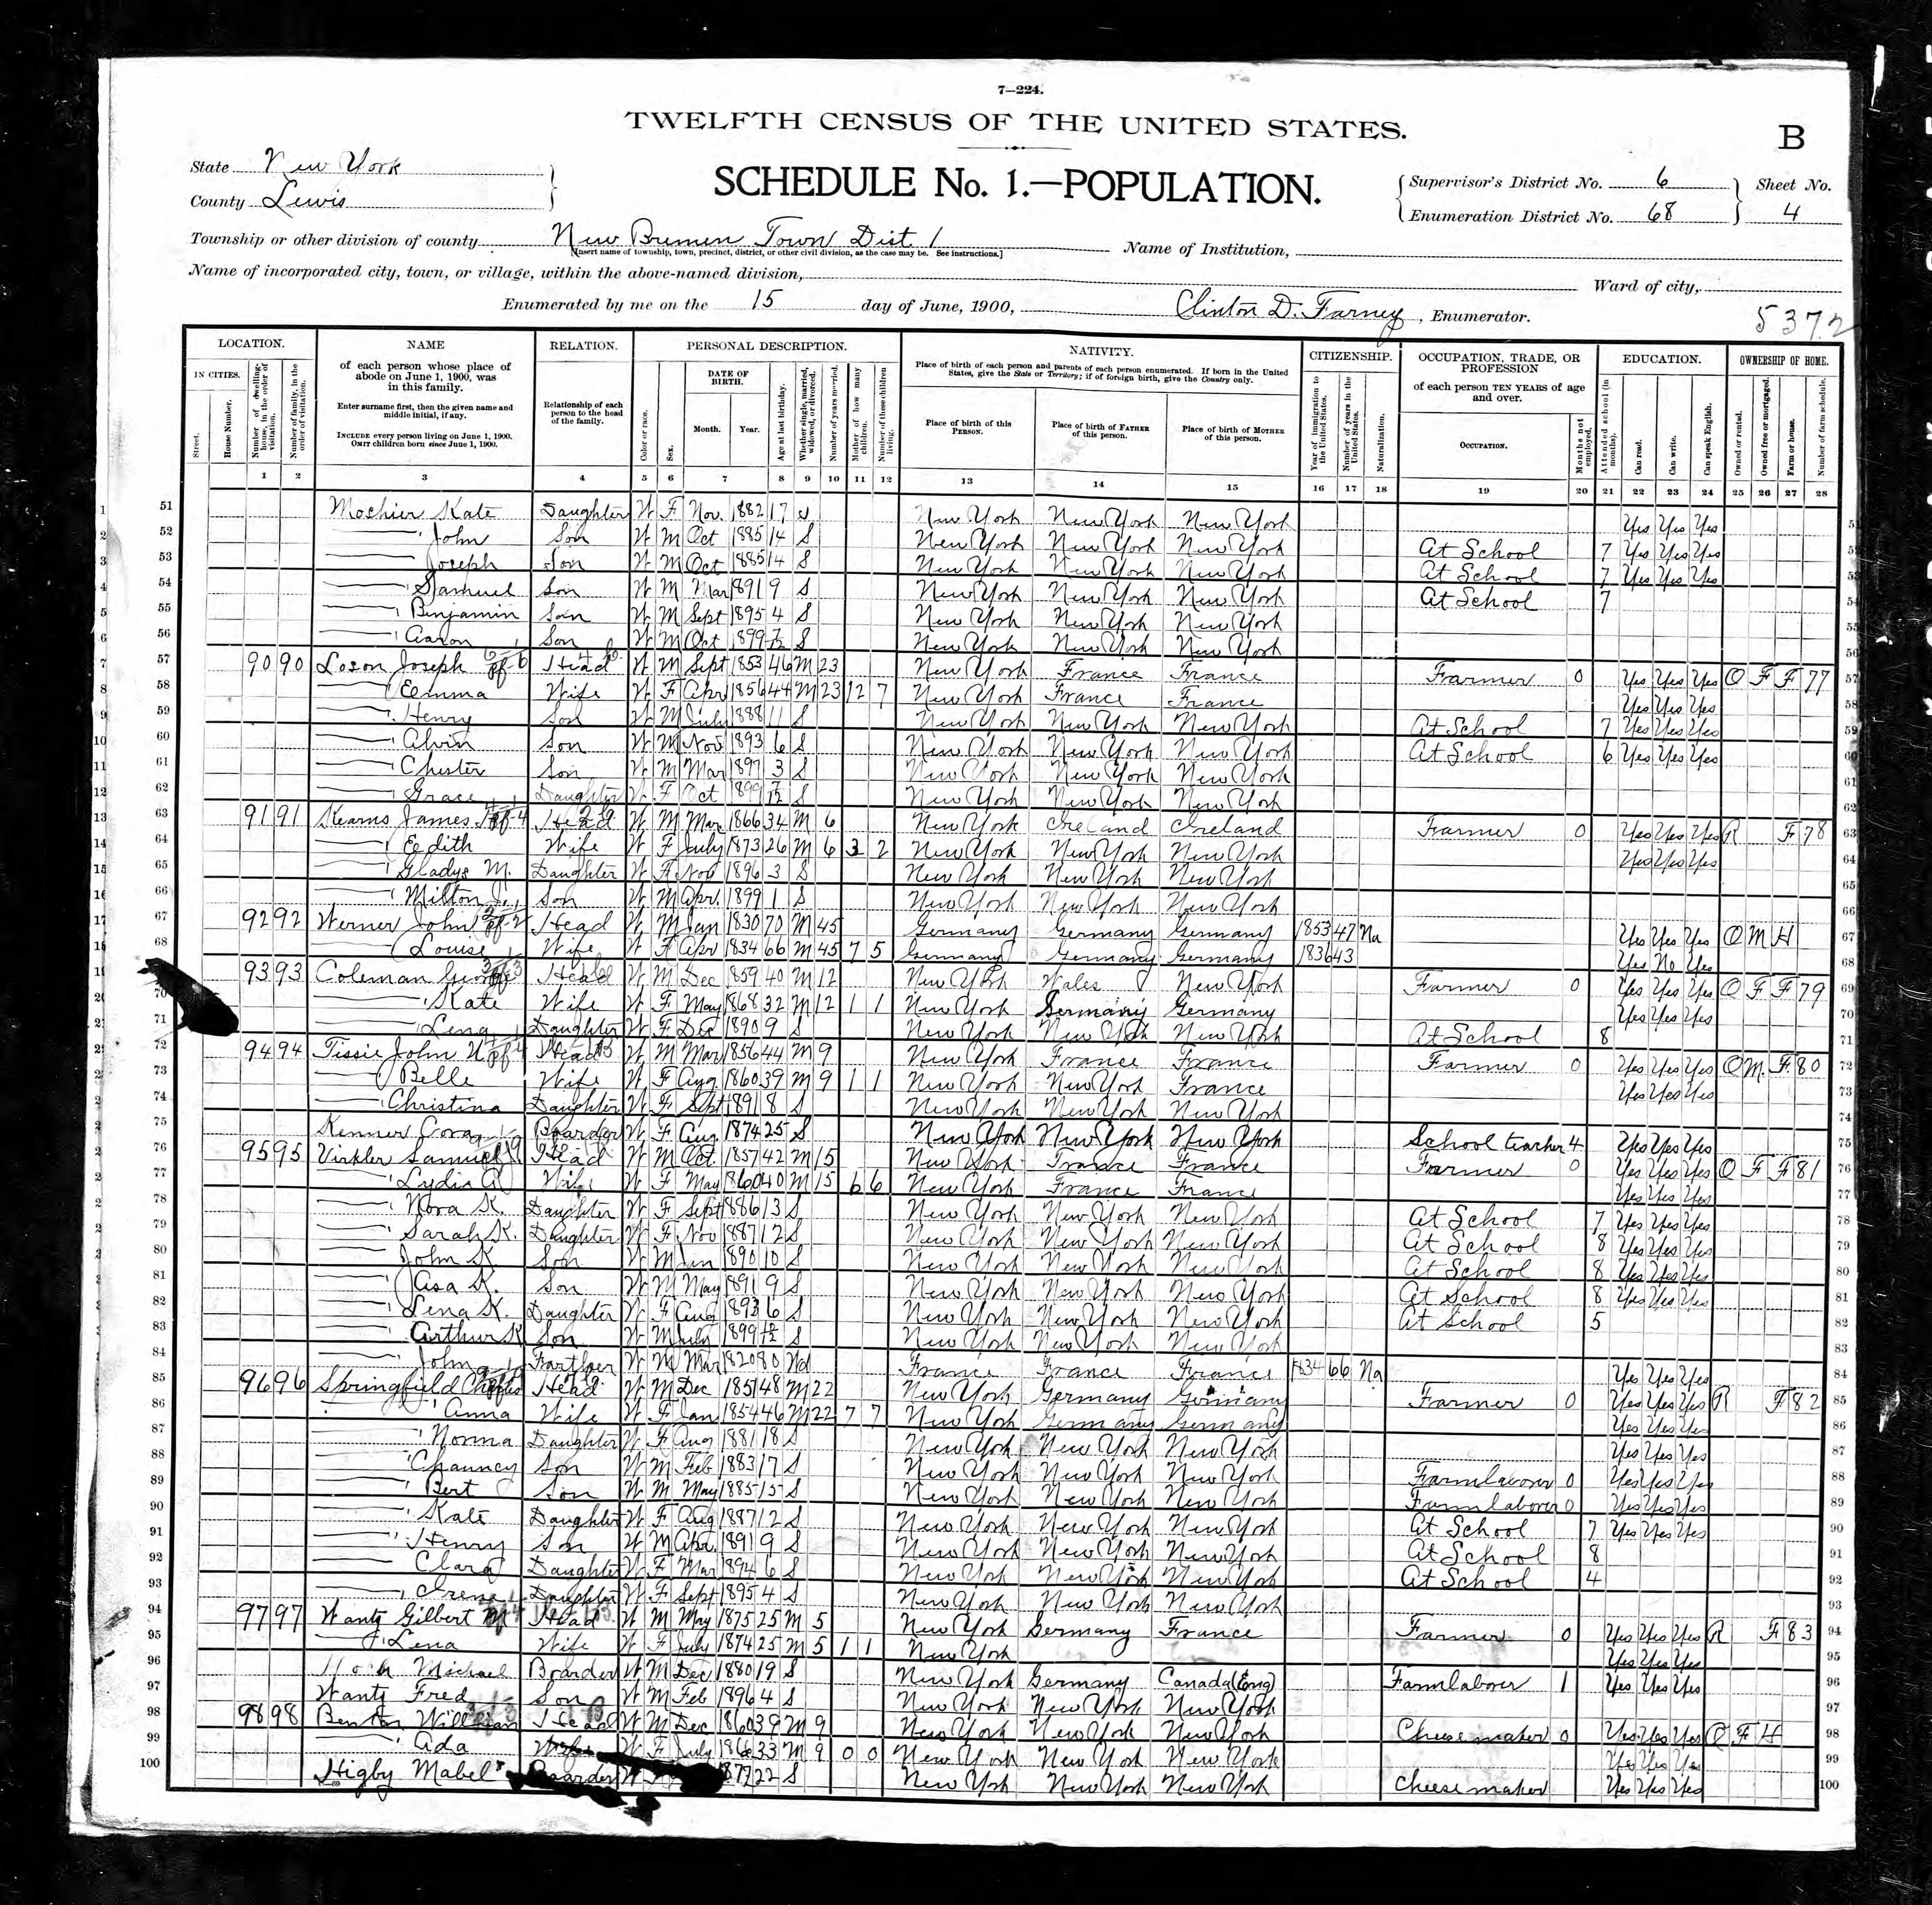 7—224.
TWELFTH CENSUS OF THE UNITED STATES.
B
State New York
County Lewis
SCHEDULE No. 1.—POPULATION.
Supervisor's District No. 6
Enumeration District No. 68
Sheet No.
4
Township or other division of county New Bremen Town Dist. 1
[Insert name of township, town, precinct, district, or other civil division, as the case may be. See instructions.]
Name of Institution,
Name of incorporated city, town, or village, within the above-named division,
Ward of city,
Enumerated by me on the 15 day of June, 1900, Clinton D. Farney, Enumerator.
5372
LOCATION. NAME RELATION. PERSONAL DESCRIPTION. NATIVITY. CITIZENSHIP. OCCUPATION, TRADE, OR PROFESSION EDUCATION. OWNERSHIP OF HOME.
IN CITIES. Street. House Number. Number of dwelling-house, in the order of visitation. Number of family, in the order of visitation.
of each person whose place of abode on June 1, 1900, was in this family.
Enter surname first, then the given name and middle initial, if any.
INCLUDE every person living on June 1, 1900. OMIT children born since June 1, 1900.
Relationship of each person to the head of the family.
Color or race. Sex. DATE OF BIRTH. Month. Year. Age at last birthday. Whether single, married, widowed, or divorced. Number of years married. Mother of how many children. Number of these children living.
Place of birth of each person and parents of each person enumerated. If born in the United States, give the State or Territory; if of foreign birth, give the Country only.
Place of birth of this PERSON. Place of birth of FATHER of this person. Place of birth of MOTHER of this person.
Year of immigration to the United States. Number of years in the United States. Naturalization.
of each person TEN YEARS of age and over.
OCCUPATION. Months not employed.
Attended school (in months). Can read. Can write. Can speak English.
Owned or rented. Owned free or mortgaged. Farm or house. Number of farm schedule.
1 2 3 4 5 6 7 8 9 10 11 12 13 14 15 16 17 18 19 20 21 22 23 24 25 26 27 28
51 Kate Daughter W F Nov. 1882 17 S New York New York New York Yes Yes Yes
52 John Son W M Oct 1885 14 S New York New York New York At School 7 Yes Yes Yes
53 Joseph Son W M Oct 1885 14 S New York New York New York At School 7 Yes Yes Yes
54 Samuel Son W M Mar 1891 9 S New York New York New York At School 7
55 Benjamin Son W M Sept 1895 4 S New York New York New York
56 Aaron Son W M Oct 1899 S New York New York New York
57 90 90 Loson Joseph Head W M Sept 1853 46 M 23 New York France France Farmer 0 Yes Yes Yes O F F 77
58 Emma Wife W F Apr 1856 44 M 23 12 7 New York France France Yes Yes Yes
59 Henry Son W M July 1888 11 S New York New York New York At School 7 Yes Yes Yes
60 Alvin Son W M Nov 1893 6 S New York New York New York At School 6 Yes Yes Yes
61 Chester Son W M Mar 1897 3 S New York New York New York
62 Grace Daughter W F Oct 1899 7/12 S New York New York New York
63 91 91 Kearns James Head W M Mar 1866 34 M 6 New York Ireland Ireland Farmer 0 Yes Yes Yes R F 78
64 Edith Wife W F July 1873 26 M 6 3 2 New York New York New York Yes Yes Yes
65 Gladys M. Daughter W F Nov 1896 3 S New York New York New York
66 Milton J. Son W M Apr. 1899 1 S New York New York New York
67 92 92 Werner John Head W M Jan 1830 70 M 45 Germany Germany Germany 1853 47 Na Yes Yes Yes O M H
68 Louise Wife W F Apr 1834 66 M 45 7 5 Germany Germany Germany 1836 43 Yes No Yes
93 93 Coleman George Head W M Dec 1859 40 M 12 New York Wales New York Farmer 0 Yes Yes Yes O F F 79
70 Kate Wife W F May 1868 32 M 12 1 1 New York Germany Germany Yes Yes Yes
71 Lena Daughter W F Dec 1890 9 S New York New York New York At School 8
72 94 94 Tissie John N Head W M Mar 1856 44 M 9 New York France France Farmer 0 Yes Yes Yes O M F 80
73 Belle Wife W F Aug 1860 39 M 9 1 1 New York New York France Yes Yes Yes
74 Christina Daughter W F Sept 1891 8 S New York New York New York
75 Kenner Cora Boarder W F Aug 1874 25 S New York New York New York School teacher 4 Yes Yes Yes
76 95 95 Virkler Samuel Head W M Oct. 1857 42 M 15 New York France France Farmer 0 Yes Yes Yes O F F 81
77 Lydia A Wife W F May 1860 40 M 15 6 6 New York France France Yes Yes Yes
78 Nora K. Daughter W F Sept 1886 13 S New York New York New York At School 7 Yes Yes Yes
79 Sarah K. Daughter W F Nov 1887 12 S New York New York New York At School 8 Yes Yes Yes
80 John K Son W M Jan 1890 10 S New York New York New York At School 8 Yes Yes Yes
81 Asa K. Son W M May 1891 9 S New York New York New York At School 8 Yes Yes Yes
82 Lena K. Daughter W F Aug 1893 6 S New York New York New York At School 5
83 Arthur K Son W M July 1899 S New York New York New York
84 John Farther W M Mar 1820 80 Wd France France France 1834 66 Na Yes Yes Yes
85 96 96 Springfield Charles Head W M Dec 1851 48 M 22 New York Germany Germany Farmer 0 Yes Yes Yes R F 82
86 Anna Wife W F Jan 1854 46 M 22 7 7 New York Germany Germany Yes Yes Yes
87 Norma Daughter W F Aug 1881 18 S New York New York New York Yes Yes Yes
88 Chauncy Son W M Feb 1883 17 S New York New York New York Farmlaborer 0 Yes Yes Yes
89 Bert Son W M May 1885 15 S New York New York New York Farmlaborer 0 Yes Yes Yes
90 Kate Daughter W F Aug 1887 12 S New York New York New York At School 7 Yes Yes Yes
91 Henry Son W M Apr. 1891 9 S New York New York New York At School 8
92 Clara Daughter W F Mar 1894 6 S New York New York New York At School 4
93 Irena Daughter W F Sept 1895 4 S New York New York New York
94 97 97 Wantz Gilbert M Head W M May 1875 25 M 5 New York Germany France Farmer 0 Yes Yes Yes R F 83
95 Lena Wife W F July 1874 25 M 5 1 1 New York Yes Yes Yes
96 Michael Boarder W M Dec 1880 19 S New York Germany Canada (Eng) Farmlaborer 1 Yes Yes Yes
97 Wantz Fred Son W M Feb 1896 4 S New York New York New York
98 98 98 Benton William Head W M Dec 1860 39 M 9 New York New York New York Cheesemaker 0 Yes Yes Yes O F H
99 Ada Wife W F July 1866 33 M 9 0 0 New York New York New York Yes Yes Yes
100 Higby Mabel Boarder W 1877 22 S New York New York New York Cheesemaker Yes Yes Yes 100